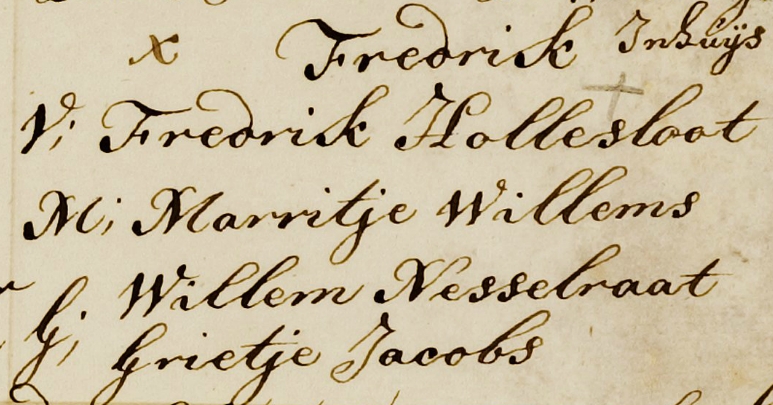 x Fredrik Inhuÿs
V; Fredrik Hollesloot
M; Marritje Willems
G; Willem Nesselraat
Grietje Jacobs